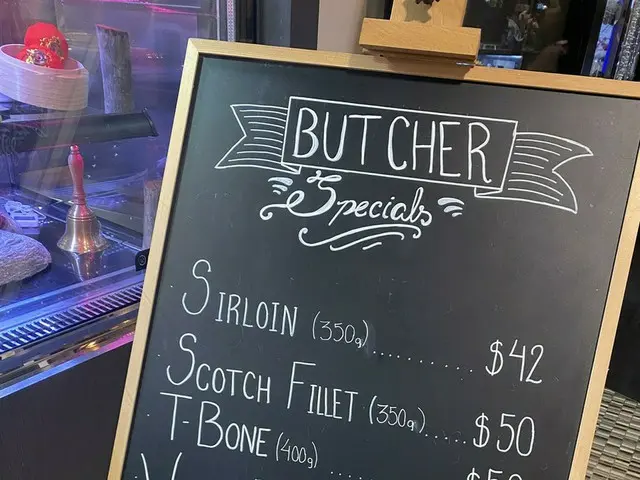 BUTCHER
Specials
SIRLOIN (350g) .............. $42
SCOTCH FILLET (350g) ..... $50
T-BONE (400g) ..............